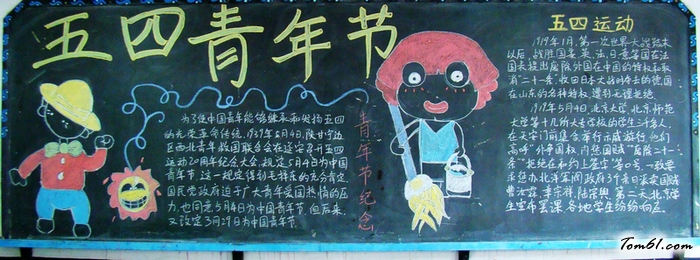 五四青年节
为了使中国青年能够继承和发扬五四
的光荣革命传统,1939年5月4日,陕甘宁边
区西北青年救国联合会在延安召开五四
运动20周年纪念大会,规定5月4日为中国
青年节。这一规定得到毛泽东的充分肯定.
国民党政府迫于广大青年爱国热情的压
力,也同意5月4日为中国青年节.但后来,
又设定3月29日为中国青年节.
青年节纪念
五四运动
1919年1月,第一次世界大战结束
以后,战胜国英、美、法、日、意等国在法
国
消"二十一条",收回日本大战时夺去的德国
在山东的各种特权,遭到无理拒绝.
1919年5月4日,北京大学、北京师范
大学等十几所大专学校的学生三千多人,
在天安门前集会举行示威游行,他们
高呼"外争国权,内惩国贼""废除二十一
条""拒绝在和约上签字"等口号,一致要
求惩办北洋军阀政府3个亲日派卖国贼
曹汝霖、章宗祥、陆宗舆.第二天,北京学
生宣布罢课,各地学生纷纷响应.
Tom61.com